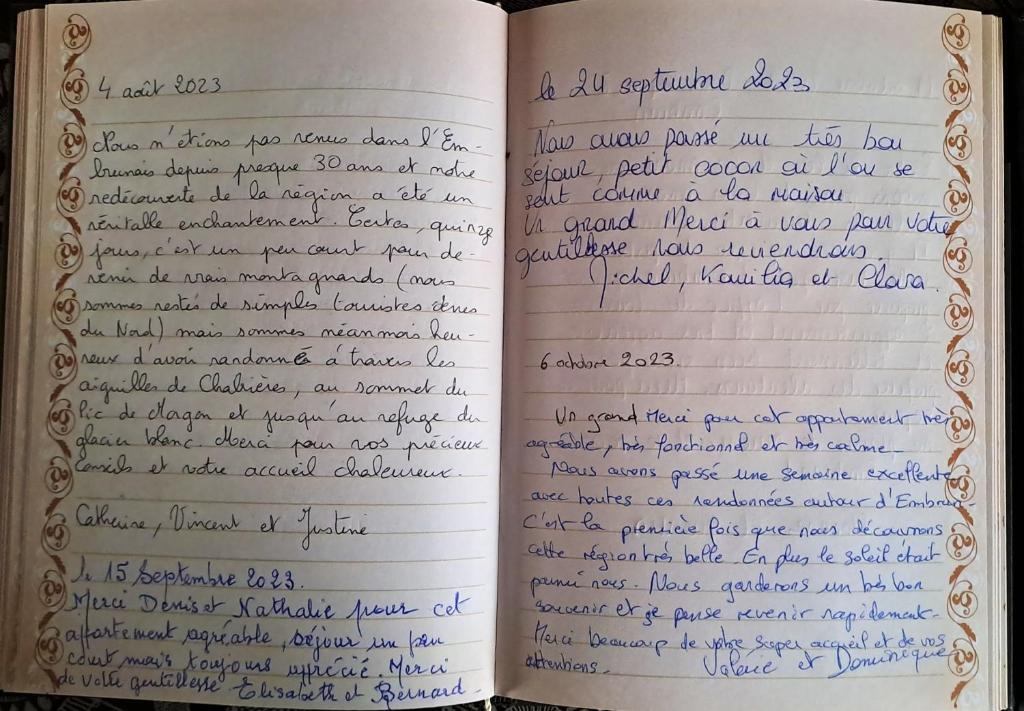 4 août 2023
Nous n'étions pas venus dans l'Em-
brunais depuis presque 30 ans et notre
redécouverte de la région a été un
véritable enchantement. Certes, quinze
jours, c'est un peu court pour de-
venir de vrais montagnards (nous
sommes restés de simples touristes venus
du Nord) mais sommes néanmois heu-
reux d'avoir randonné à travers les
aiguilles de Chabrières, au sommet du
Pic de Magon et jusqu'au refuge du
glacier blanc. Merci pour vos précieux
conseils et votre accueil chaleureux.
Catherine, Vincent et Justine
le 15 Septembre 2023.
Merci Denis et Nathalie pour cet
appartement agréable, séjour un peu
court mais toujours apprécié. Merci
de votre gentillesse Elisabeth et Bernard.
le 24 septembre 2023
Nous avons passé un très bon
séjour, petit cocon où l'on se
sent comme à la maison.
Un grand Merci à vous pour votre
gentillesse nous reviendrons.
Michel, Kamilia et Clara.
6 octobre 2023.
Un grand Merci pour cet appartement très
agréable, très fonctionnel et très calme.
Nous avons passé une semaine excellente
avec toutes ces randonnées autour d'Embrun.
C'est la première fois que nous découvrons
cette région très belle. En plus le soleil était
parmi nous. Nous garderons un très bon
souvenir et je pense revenir rapidement.
Merci beaucoup de votre super accueil et de vos
attentions. Valérie et Dominique